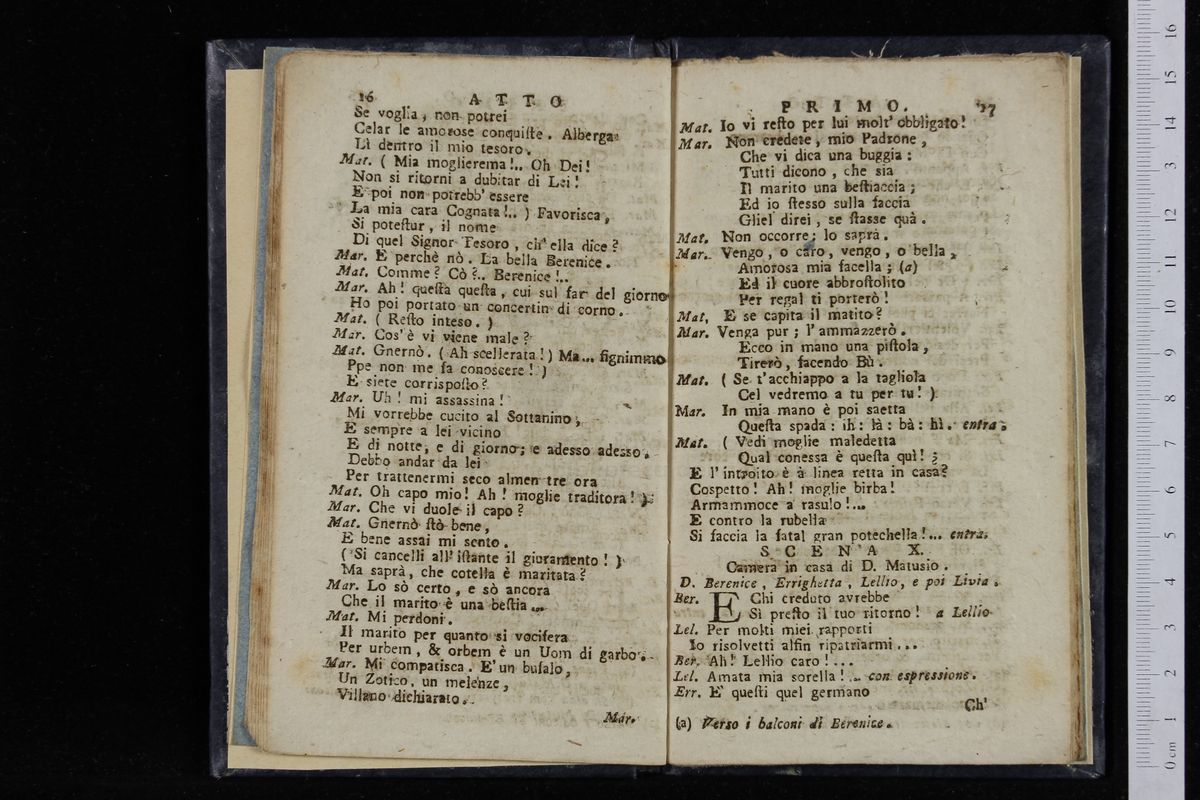 16 ATTO
Se voglia, non potrei
Celar le amorose conquiſte. Alberga
Lì dentro il mio tesoro.
Mat. ( Mia moglierema!.. Oh Dei!
Non si ritorni a dubitar di Lei!
E poi non potrebb' essere
La mia cara Cognata!.. ) Favorisca,
Si poteſtur, il nome
Di quel Signor Tesoro, ch' ella dice?
Mar. E perchè nò. La bella Berenice.
Mat. Comme? Cò?.. Berenice!..
Mar. Ah! queſta queſta, cui sul far del giorno
Ho poi portato un concertin di corno.
Mat. ( Reſto inteso. )
Mar. Cos' è vi viene male?
Mat. Gnernò. ( Ah scellerata! ) Ma... fignimmo
Ppe non me fa conoscere! )
E siete corrispoſto?
Mar. Uh! mi assassina!
Mi vorrebbe cucito al Sottanino,
E sempre a lei vicino
E di notte, e di giorno; e adesso adesso.
Debbo andar da lei
Per trattenermi seco almen tre ora
Mat. Oh capo mio! Ah! moglie traditora! );
Mar. Che vi duole il capo?
Mat. Gnernò ſtò bene,
E bene assai mi sento.
( Si cancelli all' iſtante il giuramento! )
Ma saprà, che coteſta è maritata?
Mar. Lo sò certo, e sò ancora
Che il marito è una beſtia...
Mat. Mi perdoni.
Il marito per quanto si vocifera
Per urbem, & orbem è un Uom di garbo.
Mar. Mi compatisca. E' un bufalo,
Un Zotico, un melenze,
Villano dichiarato.
Mar.
PRIMO. 17
Mat. Io vi reſto per lui molt' obbligato!
Mar. Non credete, mio Padrone,
Che vi dica una buggia:
Tutti dicono, che sia
Il marito una beſtiaccia;
Ed io ſtesso sulla faccia
Gliel direi, se ſtasse quà.
Mat. Non occorre; lo saprà.
Mar. Vengo, o caro, vengo, o bella,
Amorosa mia facella; (a)
Ed il cuore abbroſtolito
Per regal ti porterò!
Mat. E se capita il matito?
Mar. Venga pur; l' ammazzerò.
Ecco in mano una piſtola,
Tirerò, facendo Bù.
Mat. ( Se t' acchiappo a la tagliola
Cel vedremo a tu per tu! )
Mar. In mia mano è poi saetta
Queſta spada: ih: là: bà: hì. entra.
Mat. ( Vedi moglie maledetta
Qual conessa è queſta quì! ;
E l' introito è à linea retta in casa?
Cospetto! Ah! moglie birba!
Armammoce a rasulo!...
E contro la rubella
Si faccia la fatal gran potechella!... entra.
SCENA X.
Camera in casa di D. Matusio.
D. Berenice, Errighetta, Lellio, e poi Livia.
Ber. E Chi creduto avrebbe
Sì preſto il tuo ritorno! a Lellio
Lel. Per molti miei rapporti
Io risolvetti alfin ripatriarmi...
Ber. Ah! Lellio caro!...
Lel. Amata mia sorella!... con espressione.
Err. E' queſti quel germano
Ch'
(a) Verso i balconi di Berenice.